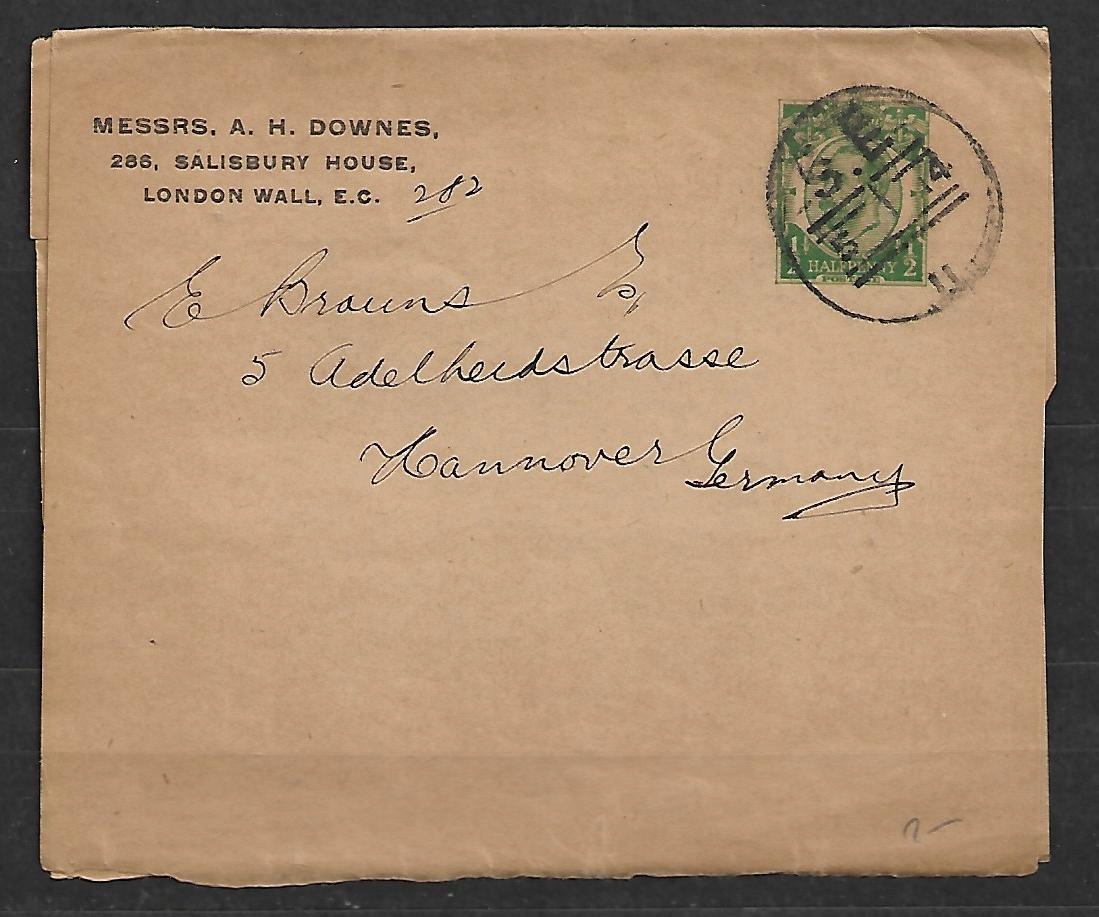 MESSRS. A. H. DOWNES,
286, SALISBURY HOUSE,
LONDON WALL, E.C. 282
1/2 HALFPENNY 1/2
POSTAGE
E Brauns
5 Adelheidstrasse
Hannover Germany